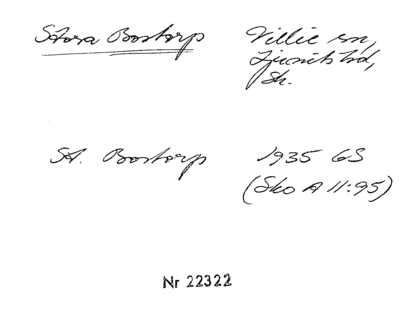 Stora Bostorp
Villie sn,
Ljunits hd,
Sk.
St. Bostorp
1935 GS
(Sko A 11:95)
Nr 22322